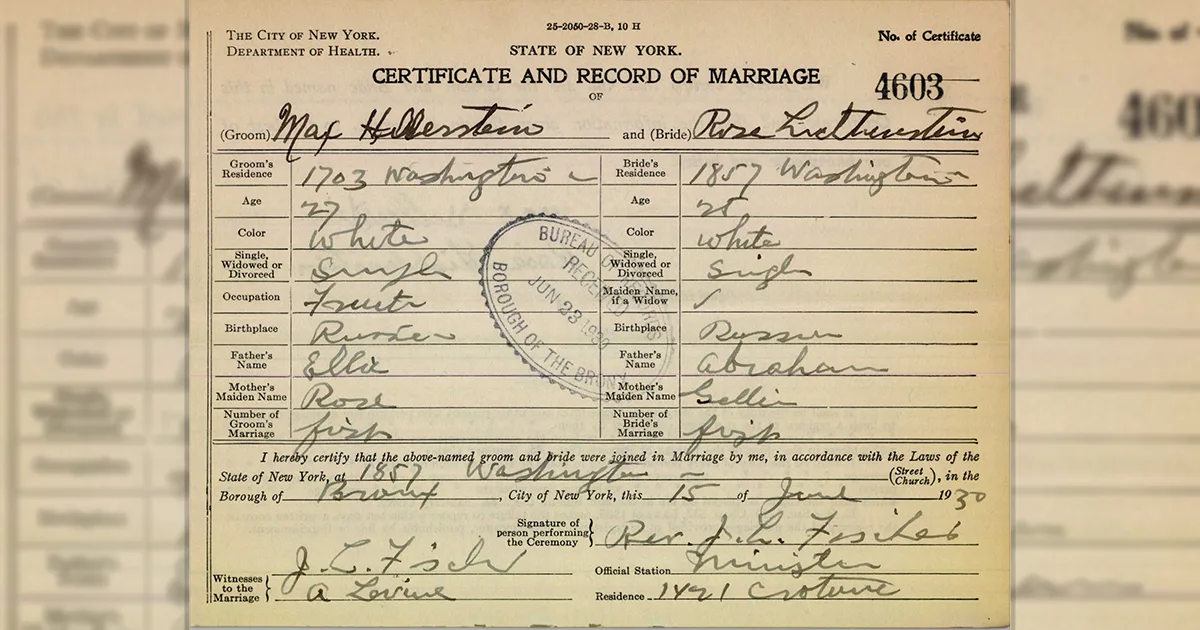 25-2050-28-B, 10 H
THE CITY OF NEW YORK.
DEPARTMENT OF HEALTH.
STATE OF NEW YORK.
No. of Certificate
CERTIFICATE AND RECORD OF MARRIAGE
4603
OF
(Groom) Max Hellerstein and (Bride) Rose
Groom's Residence 1703 Washington Bride's Residence 1857 Washington
Age 27 Age 25
Color White Color White
Single, Widowed or Divorced Single Single, Widowed or Divorced Single
Occupation Maiden Name, if a Widow ✓
Birthplace Russia Birthplace Russia
Father's Name Father's Name Abraham
Mother's Maiden Name Rose Mother's Maiden Name
Number of Groom's Marriage first Number of Bride's Marriage first
BUREAU OF RECORDS
RECEIVED
JUN 23 1930
BOROUGH OF THE BRONX
I hereby certify that the above-named groom and bride were joined in Marriage by me, in accordance with the Laws of the
State of New York, at 1857 Washington (Street Church), in the
Borough of Bronx, City of New York, this 15 of June 1930
Signature of person performing the Ceremony Rev. J. L. Fischer
J. L. Fischer
Official Station Minister
Witnesses to the Marriage A Levine
Residence 1421 Crotona